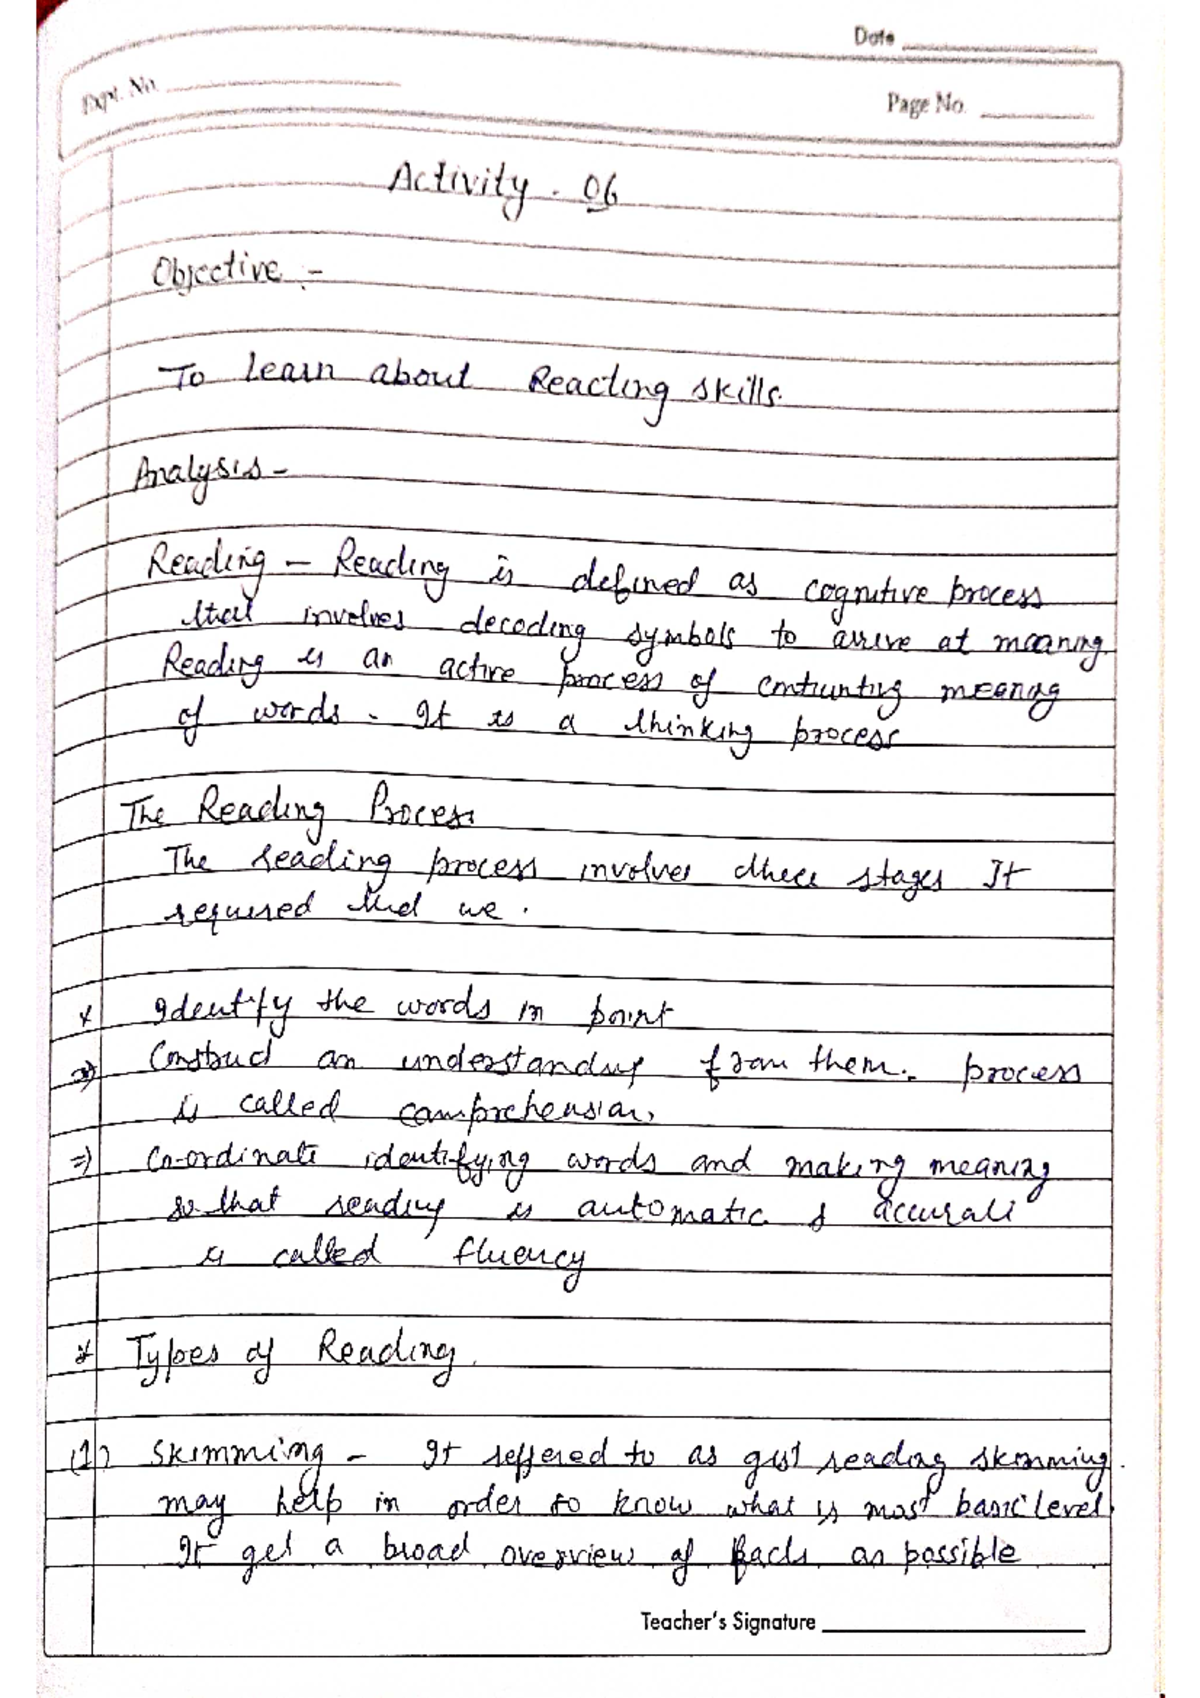 Date
Expt. No.
Page No.
Activity - 06
Objective :-
To learn about Reading skills.
Analysis -
Reading - Reading is defined as cognitive process
that involves decoding symbols to arrive at meaning.
Reading is an active process of meaning
of words. It is a thinking process
The Reading Process
The reading process involves three stages It
required that we.
x Identify the words in point
=> Construct an understanding from them. process
is called comprehension.
=> Co-ordinate identifying words and making meaning
so that reading is automatic & accurate
is called fluency
* Types of Reading.
(1) Skimming - It reffered to as gist reading skimming.
may help in order to know what is most basic level.
It get a broad overview of facts as possible
Teacher's Signature